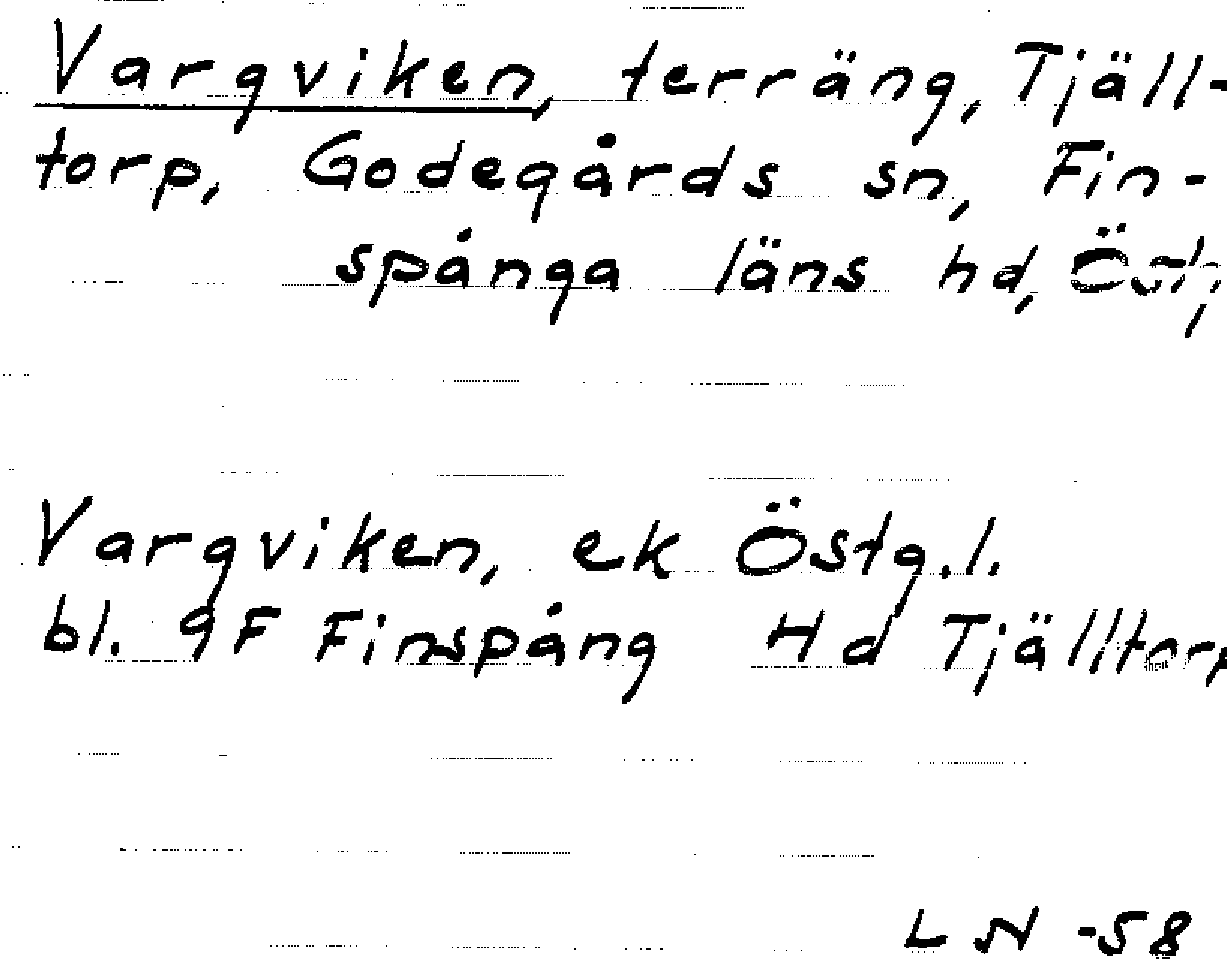 Vargviken, terräng, Tjäll-
torp, Godegårds sn, Fin-
spånga läns hd, Östg
Vargviken, ek Östg.l.
bl. 9F Finspång Hd Tjälltorp
LN -58